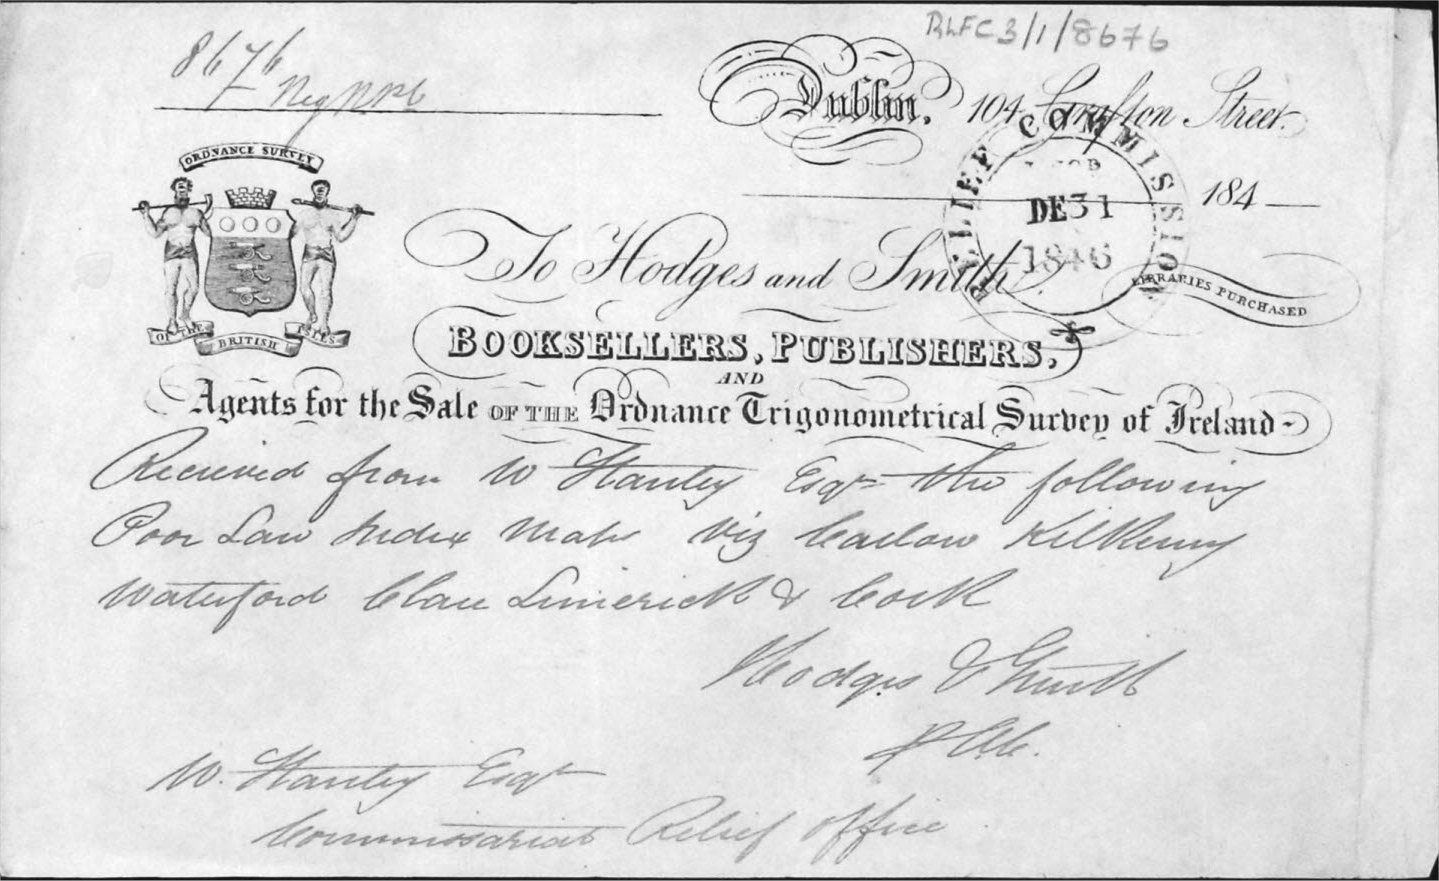 RLFC3/1/8676
8676
Dublin, 104 Grafton Street.
184
RELIEF COMMISSION
DE 31
1846
ORDNANCE SURVEY
OF THE BRITISH ISLES
To Hodges and Smith
LIBRARIES PURCHASED
BOOKSELLERS, PUBLISHERS,
AND
Agents for the Sale OF THE Ordnance Trigonometrical Survey of Ireland
Received from W Stanley Esqr the following
Poor Law Index Maps Viz Carlow Kilkenny
Waterford Clare Limerick & Cork
Hodges & Smith
W. Stanley Esqr
Commissariat Relief office